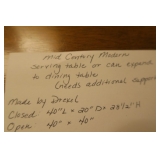 Mid Century Modern
Serving table or can expand
to dining table
(needs additional support
Made by Drexel
Closed 40"L x 20"D x 28½"H
Open 40" x 40"